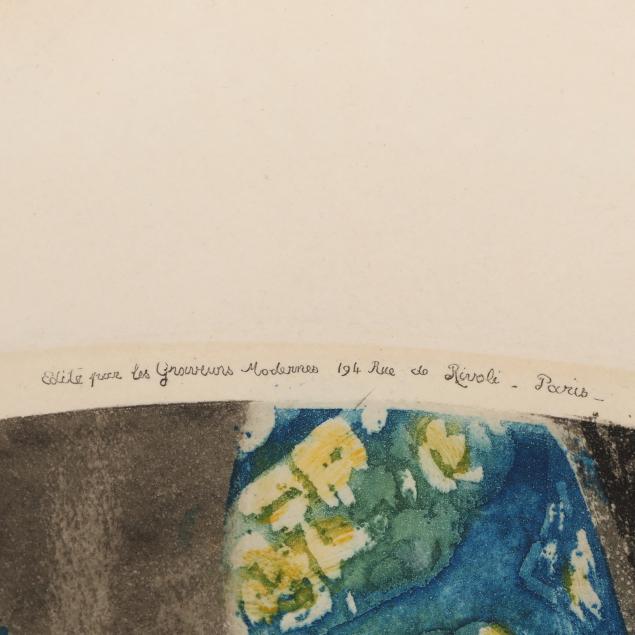 Edité par les Graveurs Modernes 194 Rue de Rivoli - Paris -